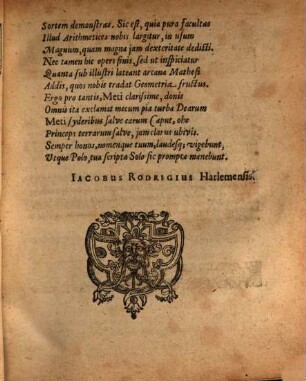 Sortem demonstras. Sic est, quia pura facultas
Illud Arithmetices nobis largitur, in usum
Magnum, quam magna jam dexteritate dedisti.
Nec tamen hic operi finis, sed ut inspiciatur
Quanta sub illustri lateant arcana Mathesi
Addis, quos nobis tradat Geometria fructus.
Ergo pro tantis, Meti clarissime, donis
Omnis ita exclamat mecum pia turba Dearum
Meti syderibus salve earum Caput, ohe
Princeps terrarum salve, jam clarus ubivis.
Semper honos, nomenque tuum, laudesq; vigebunt,
Utque Polo, tua scripta Solo sic prompta manebunt.
IACOBUS RODRIGIUS Harlemensis.